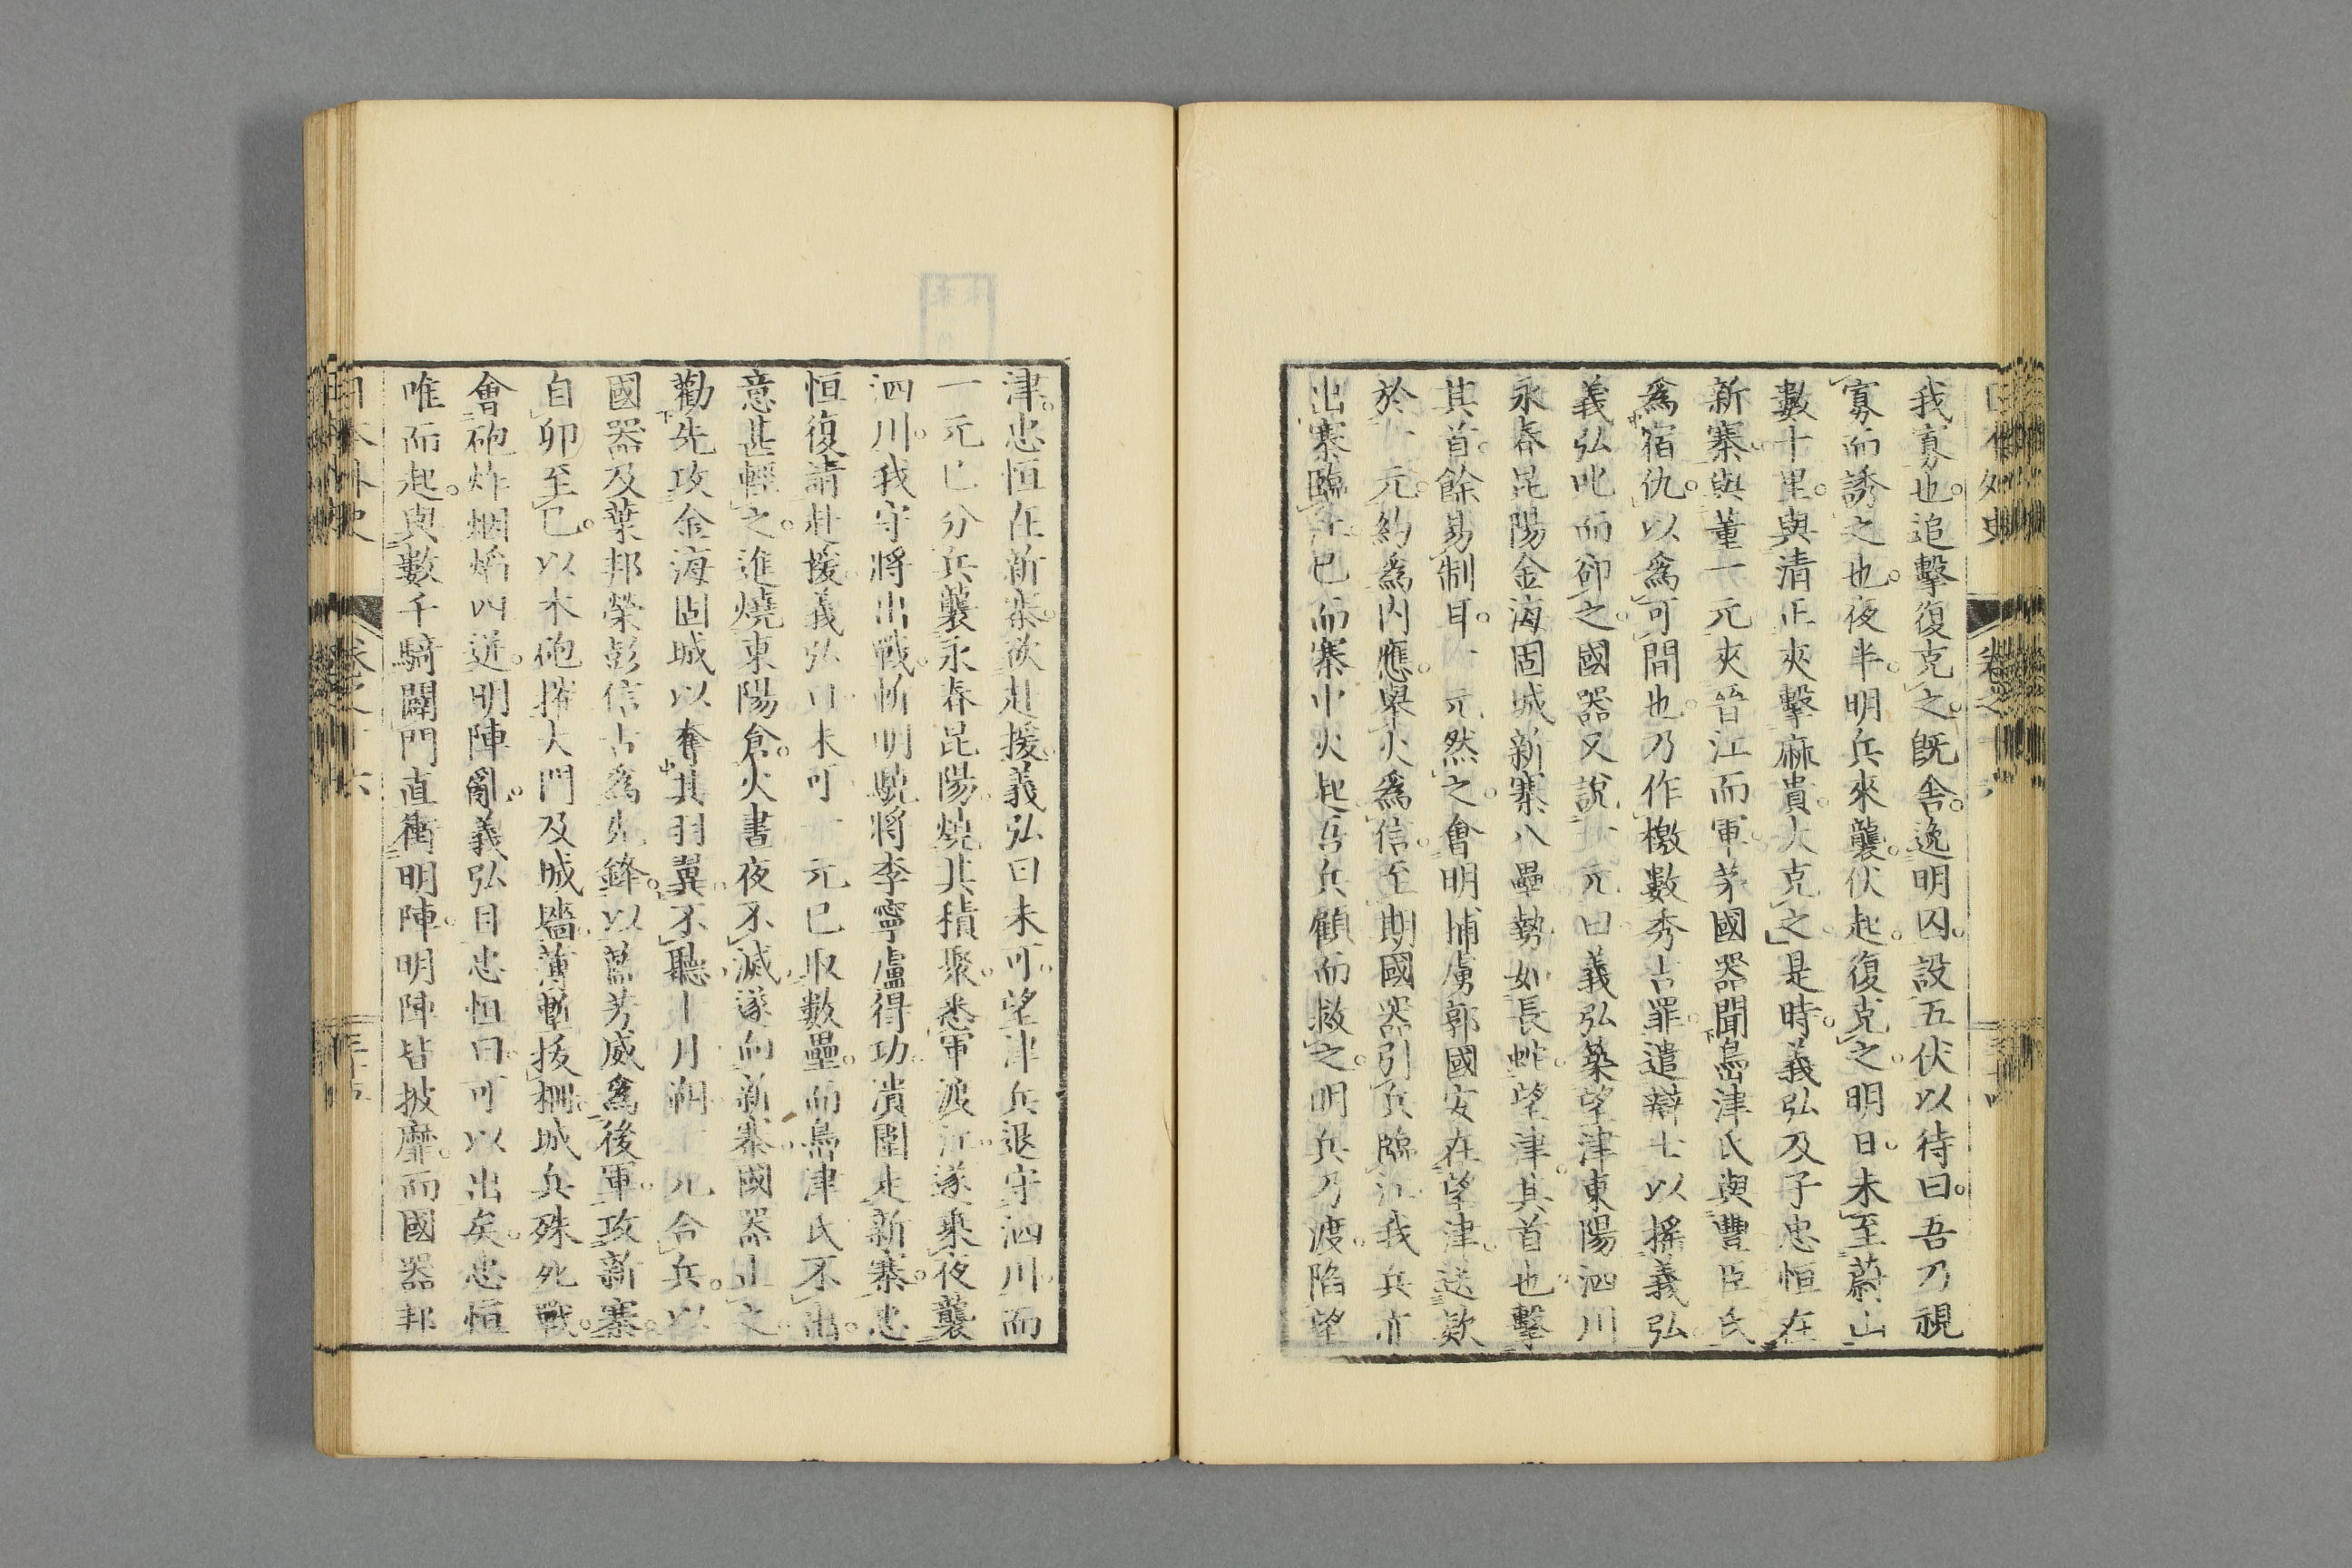 我寡也。追擊復克之。既舍。逸明囚。設五伏以待曰。吾乃視
寡而誘之也。夜半。明兵來襲。伏起。復克之。明日。未至蔚山
數十里。與清正夾擊麻貴。大克之。是時。義弘及子忠恒在
新寨。與董一元夾晉江而軍。茅國器聞島津氏與豐臣氏
爲宿仇。以爲可間也。乃作檄數秀吉罪。遣辯士以搖義弘。
義弘叱而卻之。國器又說一元曰。義弘築望津東陽泗川
永春昆陽金海固城新寨八壘。勢如長蛇。望津。其首也。擊
其首。餘易制耳。一元然之。會明捕虜郭國安在望津。送款
於一元。約爲內應。舉火爲信。至期國器引兵臨江。我兵亦
出寨臨江。已而寨中火起。吾兵顧而救之。明兵乃渡。陷望
津。忠恒在新寨。欲赴援。義弘曰未可。望津兵退守泗川。而
一元已分兵襲永春昆陽。燒其積聚。悉軍渡江。遂乘夜襲
泗川。我守將出戰。斬明驍將李寧盧得功。潰圍走新寨。忠
恒復請赴援。義弘曰未可。一元已取數壘。而島津氏不出。
意甚輕之。進燒東陽倉。火晝夜不滅。遂向新寨。國器止之。
勸先攻金海固城以奪其羽翼。不聽。十月朔。一元令兵。以
國器及葉邦榮彭信古爲先鋒。以藍芳威爲後軍。攻新寨。
自卯至巳。以木砲摧大門及城墻。薄塹拔柵。城兵殊死戰。
會砲炸烟焰四迸。明陣亂。義弘目忠恒曰。可以出矣。忠恒
唯而起。與數千騎闢門直衝明陣。明陣皆披靡。而國器邦